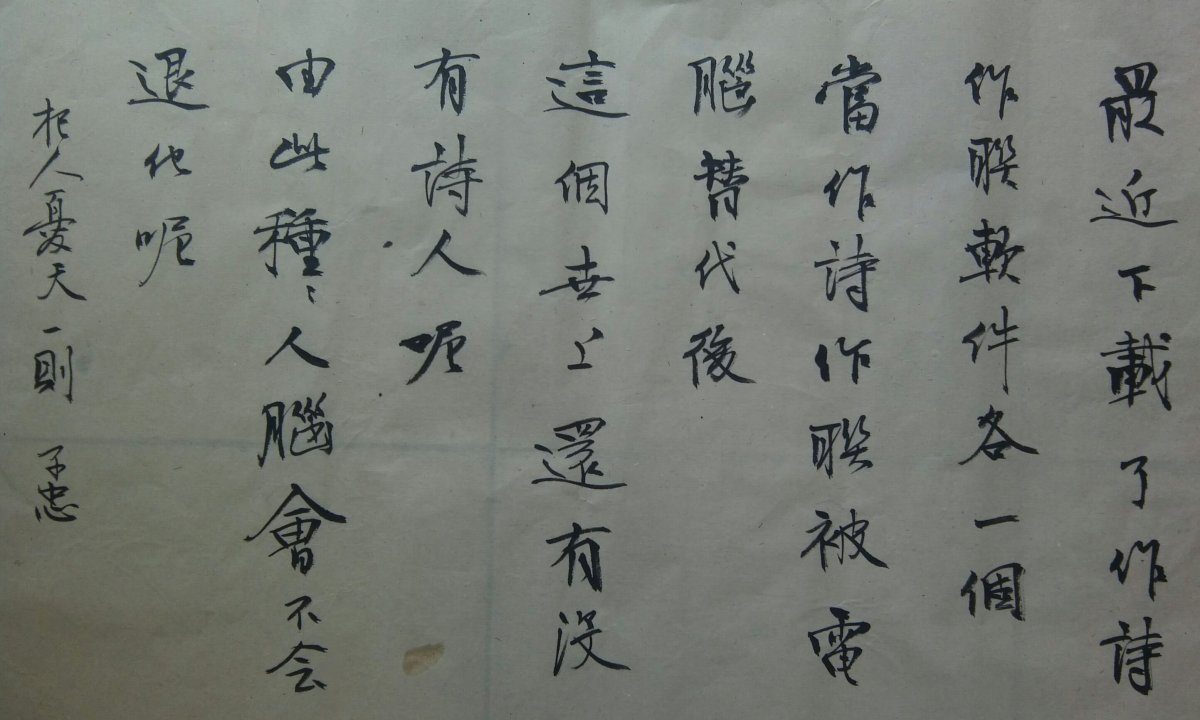 最近下載了作詩
作聯軟件各一個
當作詩作聯被電
腦替代後
這個世上還有没
有詩人呢
由此種〻人腦會不会
退化呢
杞人憂天一則 子忠